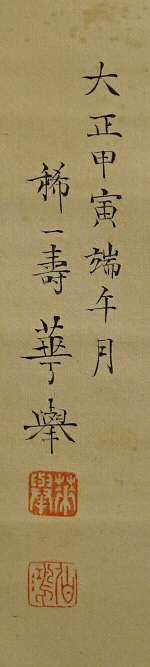 大正甲寅端午月
稀一壽華舉